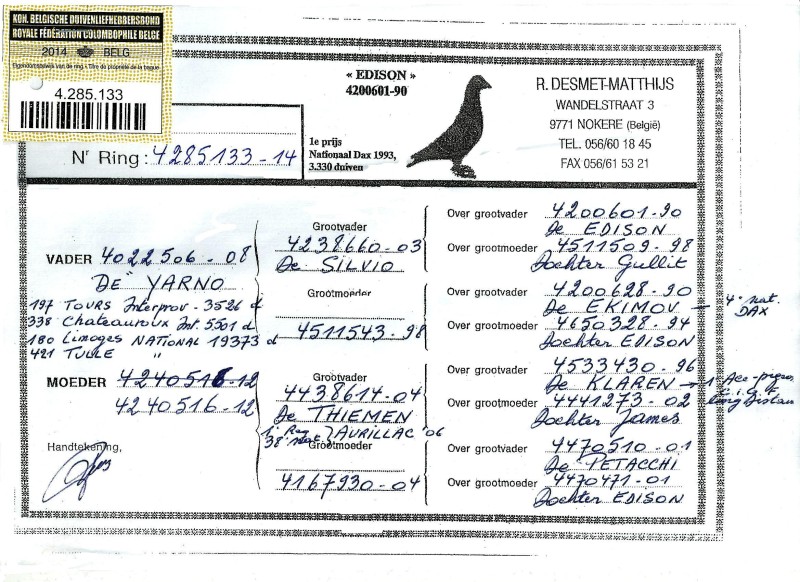 KON. BELGISCHE DUIVENLIEFHEBBERSBOND
ROYALE FÉDÉRATION COLOMBOPHILE BELGE
2014 BELG
Eigendomsbewijs van de ring • Titre de propriété de la bague
4.285.133
« EDISON »
4200601-90
1e prijs
Nationaal Dax 1993,
3.330 duiven
R. DESMET-MATTHIJS
WANDELSTRAAT 3
9771 NOKERE (België)
TEL. 056/60 18 45
FAX 056/61 53 21
Nr Ring: 4285133-14
VADER 4022506-08
"DE" YARNO
197 TOURS Interprov - 3526 d
338 Chateauroux Int. 5501 d
180 Limoges NATIONAL 19373 d
421 TULLE "
Grootvader
4238660-03
De SILVIO
Grootmoeder
4511543-98
Over grootvader 4200601-90
De EDISON
Over grootmoeder 4511509-98
Dochter Gullit
Over grootvader 4200628-90
De EKIMOV → 4e nat. DAX
Over grootmoeder 4650328-94
Dochter EDISON
MOEDER 4240516-12
4240516-12
Grootvader
4438614-04
De THIEMEN
38 nat. } AURILLAC '06
Grootmoeder
4167930-04
Over grootvader 4533430-96
De KLAREN →
Over grootmoeder 4441273-02
Dochter James
Over grootvader 4470510-01
De PETACCHI
Over grootmoeder 4470471-01
Dochter EDISON
Handtekening,